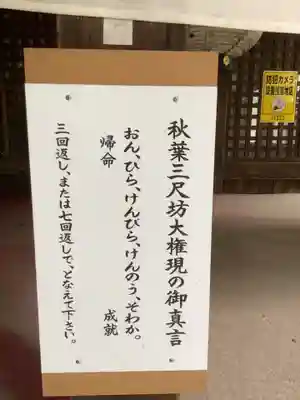 秋葉三尺坊大権現の御真言
おん、ひら、けんびら、けんのう、そわか。
帰命
成就
三回返し、または七回返しで、となえて下さい。
防犯カメラ